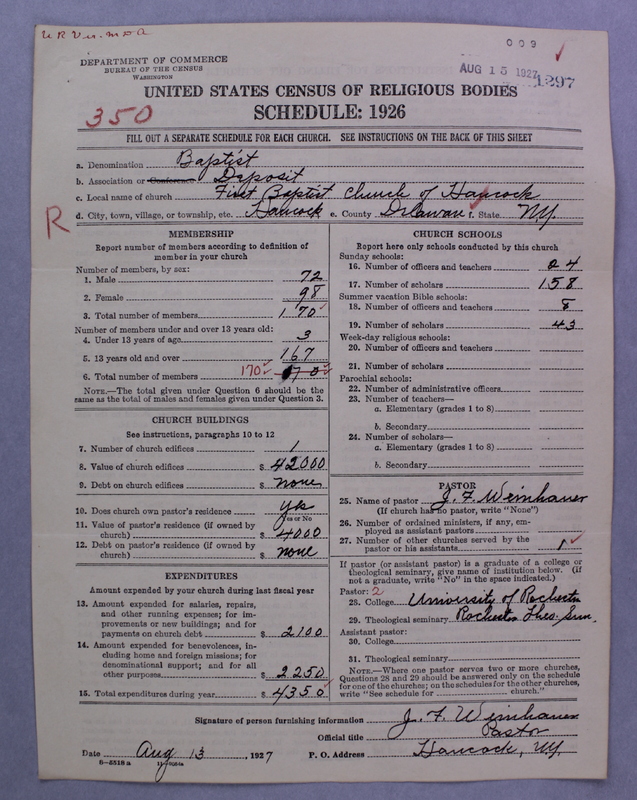 U R Vu. m D A
009
AUG 15 1927
1297
DEPARTMENT OF COMMERCE
BUREAU OF THE CENSUS
WASHINGTON
UNITED STATES CENSUS OF RELIGIOUS BODIES
350
SCHEDULE: 1926
FILL OUT A SEPARATE SCHEDULE FOR EACH CHURCH. SEE INSTRUCTIONS ON THE BACK OF THIS SHEET
a. Denomination Baptist
b. Association or Conference Deposit
c. Local name of church First Baptist Church of Hancock
R
d. City, town, village, or township, etc. Hancock e. County Delaware f. State NY
MEMBERSHIP
Report number of members according to definition of
member in your church
Number of members, by sex:
1. Male 72
2. Female 98
3. Total number of members 170
Number of members under and over 13 years old:
4. Under 13 years of age 3
5. 13 years old and over 167
6. Total number of members 170 170
NOTE.—The total given under Question 6 should be the
same as the total of males and females given under Question 3.
CHURCH BUILDINGS
See instructions, paragraphs 10 to 12
7. Number of church edifices 1
8. Value of church edifices $ 42000
9. Debt on church edifices $ none
10. Does church own pastor's residence? yes
Yes or No
11. Value of pastor's residence (if owned by
church) $ 4000
12. Debt on pastor's residence (if owned by
church) $ none
EXPENDITURES
Amount expended by your church during last fiscal year
13. Amount expended for salaries, repairs,
and other running expenses; for im-
provements or new buildings; and for
payments on church debt $ 2100
14. Amount expended for benevolences, in-
cluding home and foreign missions; for
denominational support; and for all
other purposes $ 2250
15. Total expenditures during year $ 4350
CHURCH SCHOOLS
Report here only schools conducted by this church
Sunday schools:
16. Number of officers and teachers 24
17. Number of scholars 158
Summer vacation Bible schools:
18. Number of officers and teachers 8
19. Number of scholars 43
Week-day religious schools:
20. Number of officers and teachers
21. Number of scholars
Parochial schools:
22. Number of administrative officers
23. Number of teachers—
a. Elementary (grades 1 to 8)
b. Secondary
24. Number of scholars—
a. Elementary (grades 1 to 8)
b. Secondary
PASTOR
25. Name of pastor J. F. Weinhauer
(If church has no pastor, write "None")
26. Number of ordained ministers, if any, em-
ployed as assistant pastors
27. Number of other churches served by the
pastor or his assistants 1
If pastor (or assistant pastor) is a graduate of a college or
theological seminary, give name of institution below. (If
not a graduate, write "No" in the space indicated.)
Pastor: 2
28. College University of Rochester
29. Theological seminary Rochester Theo. Sem.
Assistant pastor:
30. College
31. Theological seminary
NOTE.—Where one pastor serves two or more churches,
Questions 28 and 29 should be answered only on the schedule
for one of the churches; on the schedules for the other churches,
write "See schedule for church."
Signature of person furnishing information J. F. Weinhauer
Official title Pastor
Date Aug 13, 1927 P. O. Address Hancock, NY.
8-5518a